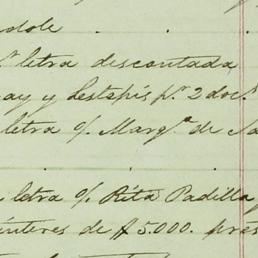 ndole
letra descontada
ay y Lestapis pr. 2 doc.
letra o/ Margta. de Sa
letra o/ Rita Padilla
interes de $5.000. prés